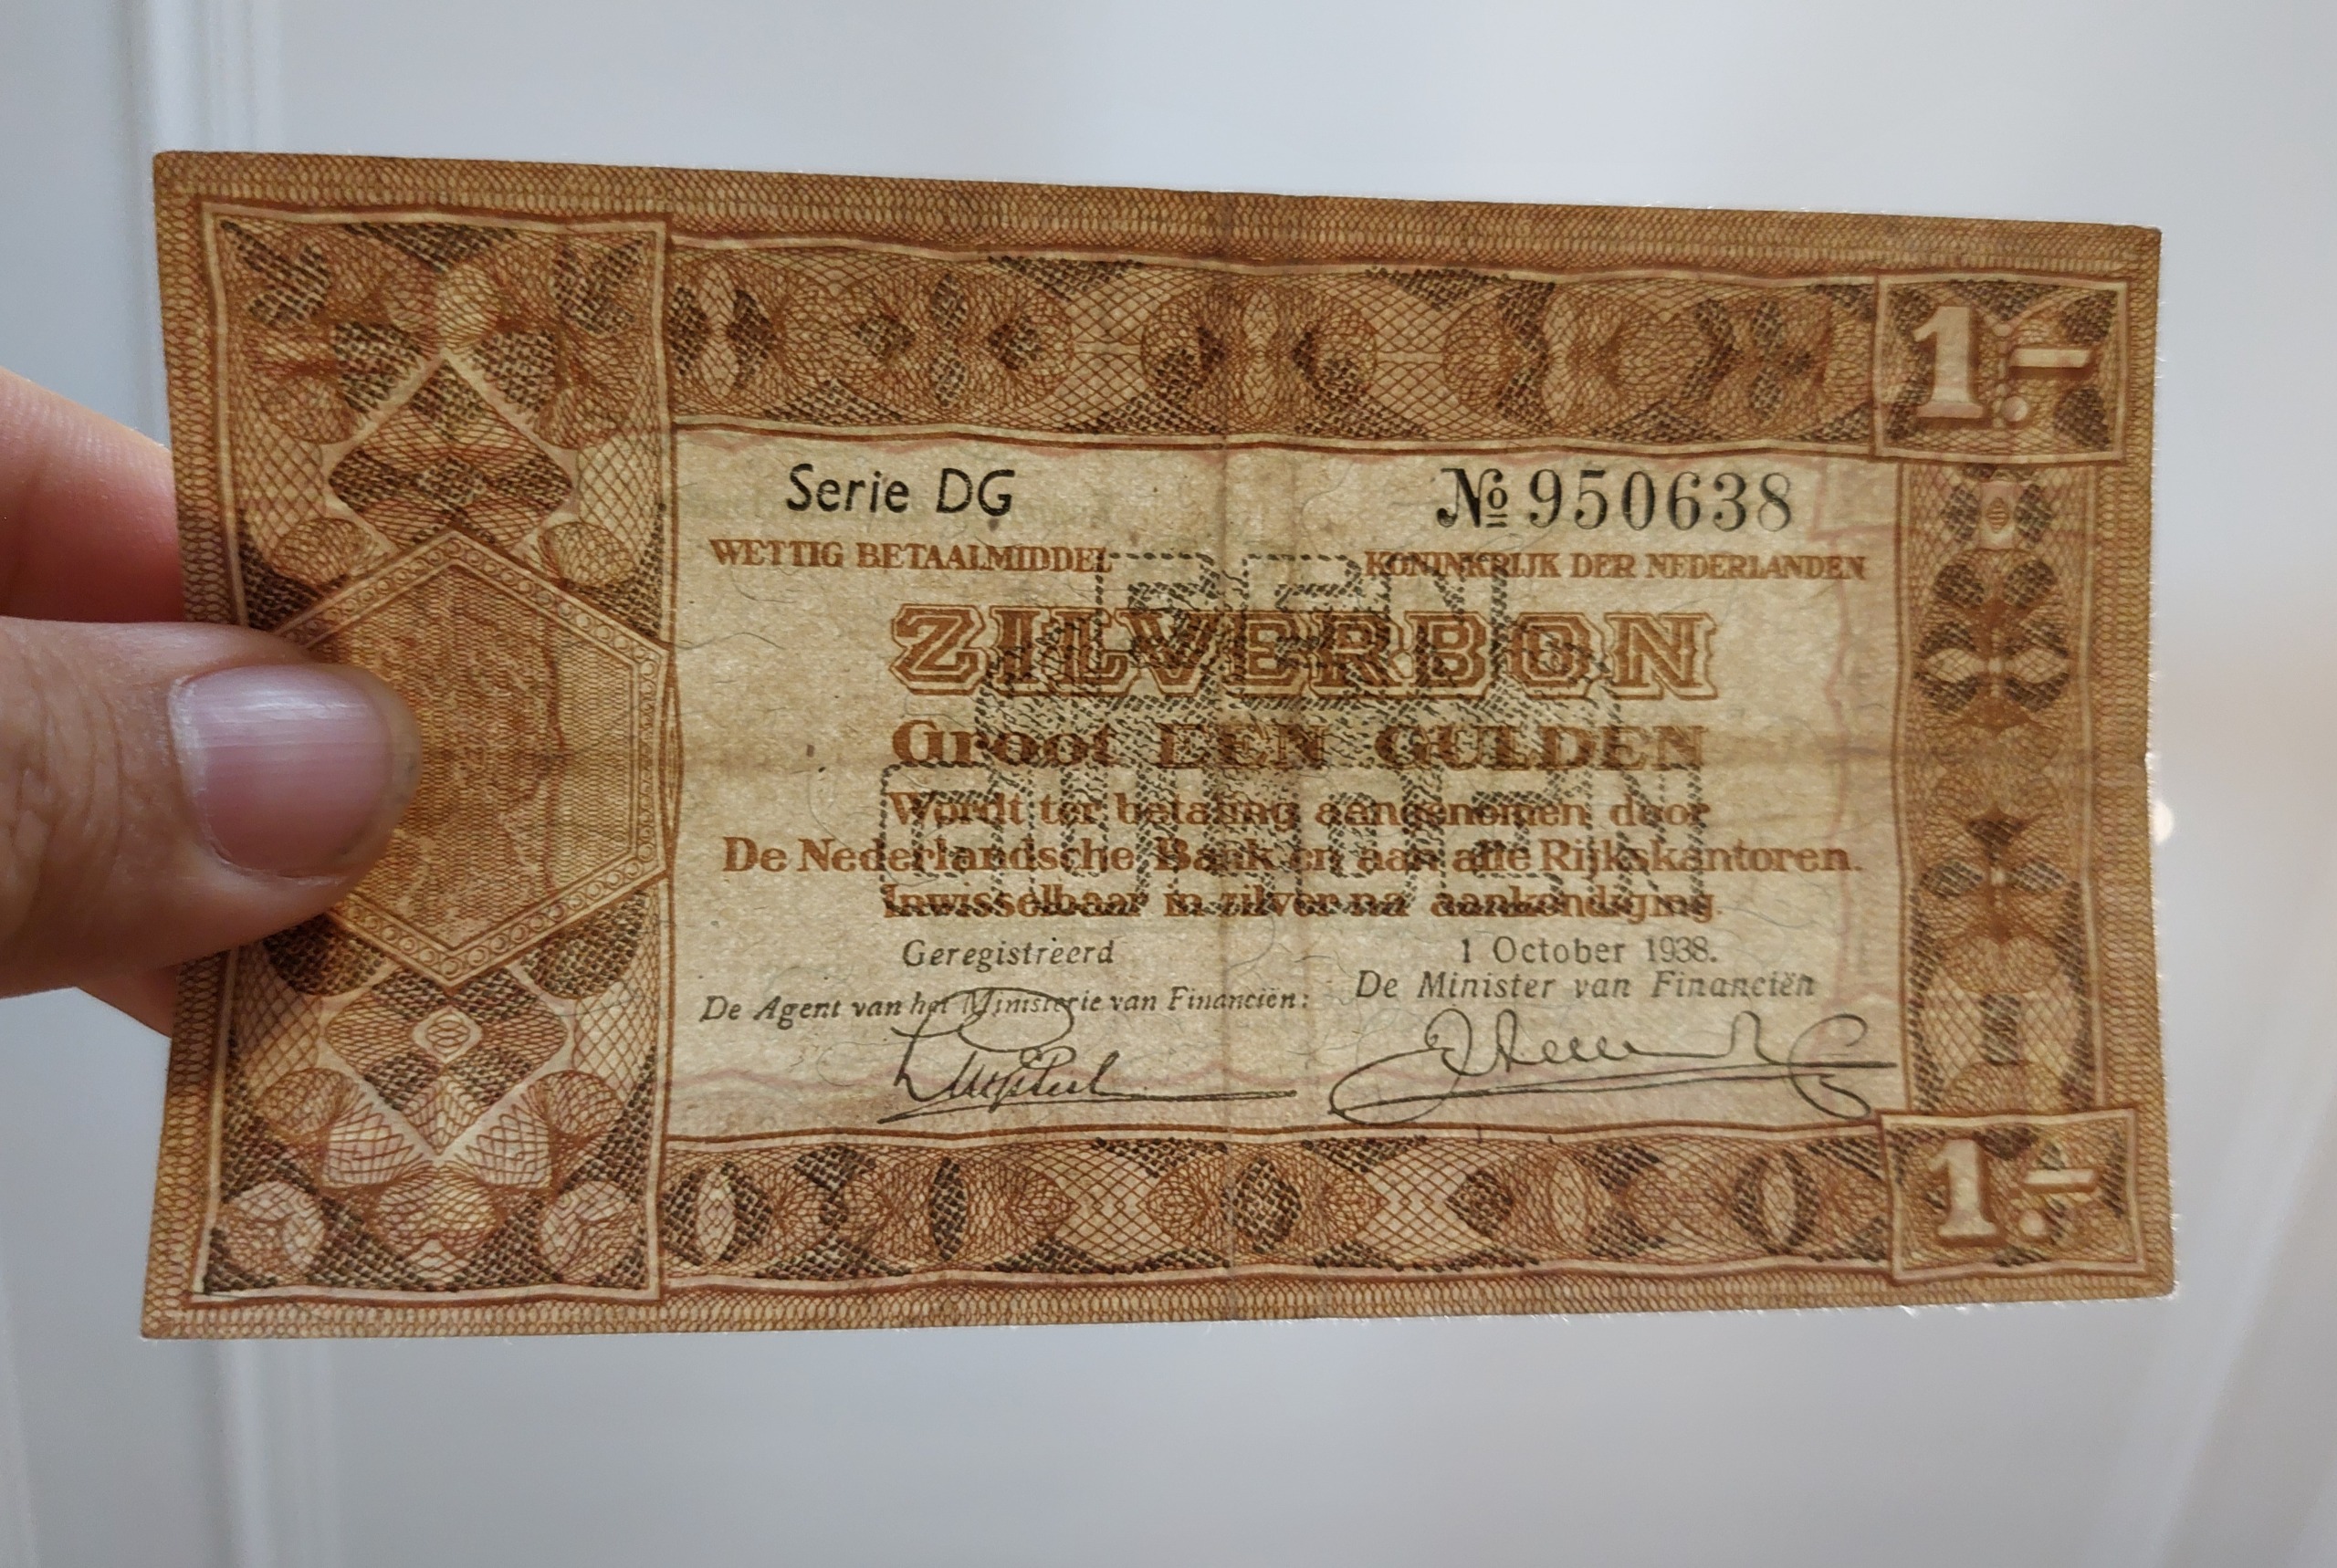 1.-
Serie DG № 950638
WETTIG BETAALMIDDEL KONINKRIJK DER NEDERLANDEN
ZILVERBON
Groot EEN GULDEN
Wordt ter betaling aangenomen door
De Nederlandsche Bank en aan alle Rijkskantoren.
Inwisselbaar in zilver na aankondiging.
Geregistreerd 1 October 1938.
De Agent van het Ministerie van Financiën: De Minister van Financiën
1.-